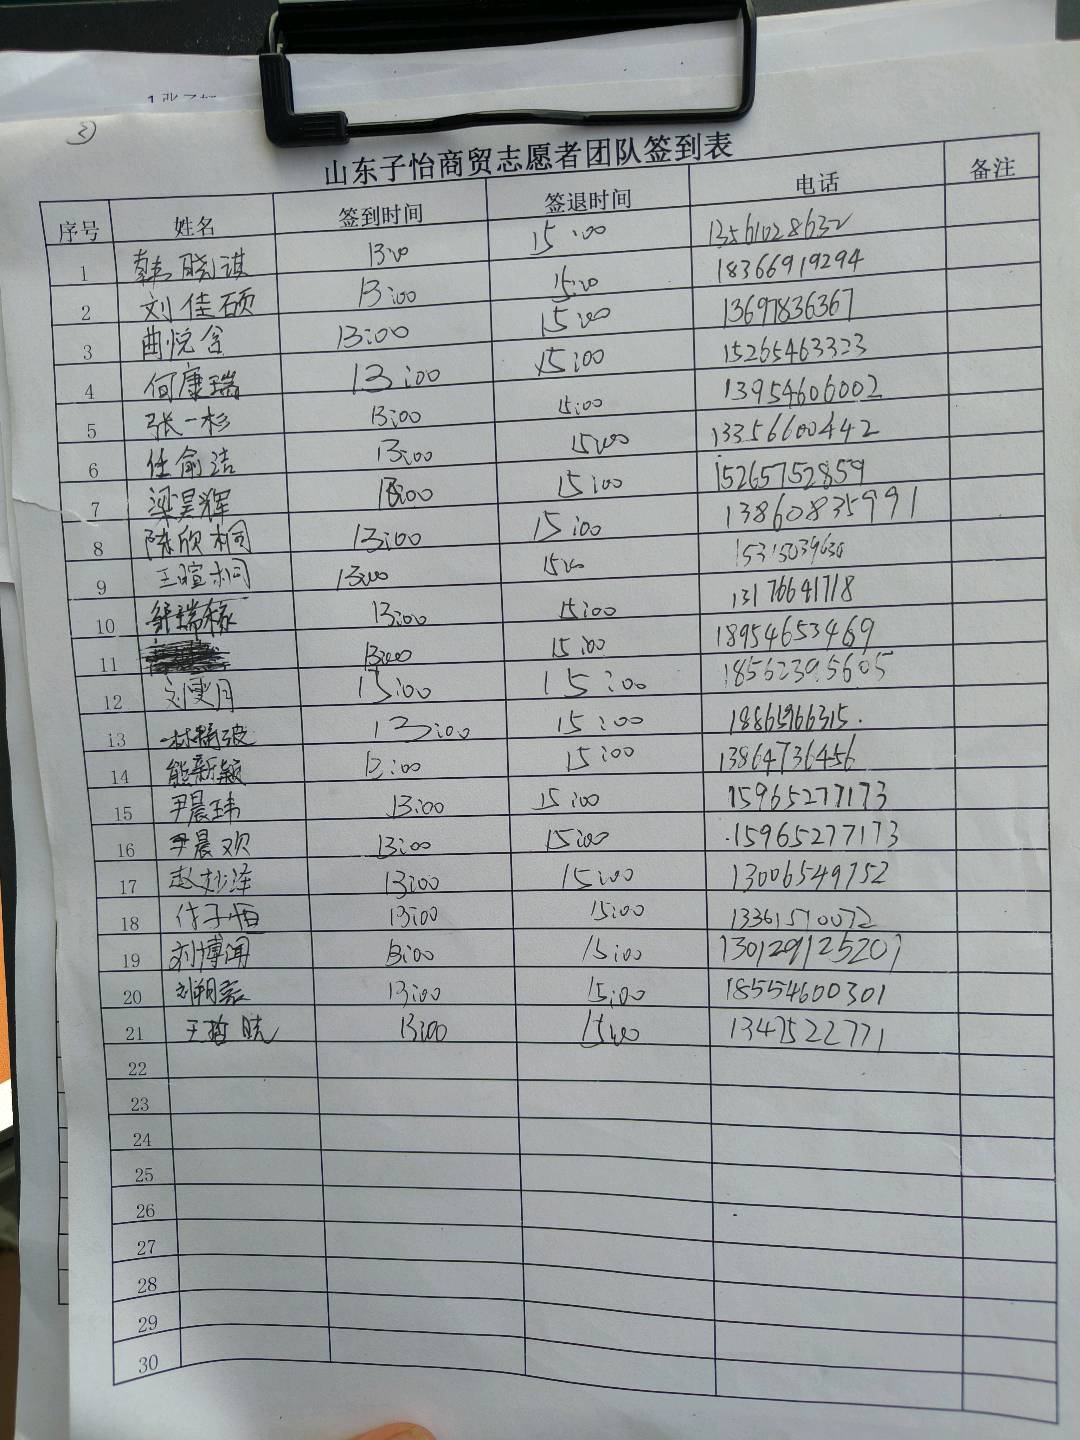 3
山东子怡商贸志愿者团队签到表
序号 姓名 签到时间 签退时间 电话 备注
1 韩晓淇 13:00 15:00 13561028632
2 刘佳硕 13:00 15:00 18366919294
3 曲悦含 13:00 15:00 13697836367
4 何康瑞 13:00 15:00 15265463323
5 张一杉 13:00 15:00 13954606002
6 任俞洁 13:00 15:00 13356600442
7 梁昊辉 13:00 15:00 15265752859
8 陈欣桐 13:00 15:00 13860835991
9 王暄桐 13:00 15:00
10 13:00 15:00 13176641718
11 13:00 15:00 18954653469
12 刘雯月 15:00 15:00 18562395605
13 13:00 15:00 18865966315.
14 熊新颖 13:00 15:00 13864736456
15 尹晨玮 13:00 15:00 15965277173
16 尹晨欢 13:00 15:00 15965277173
17 赵妙泽 13:00 15:00 13006549752
18 付子恒 13:00 15:00 13361510072
19 刘博闻 13:00 15:00 130129125201
20 13:00 15:00 18554600301
21 王哲晓 13:00 15:00 1347522771
22
23
24
25
26
27
28
29
30